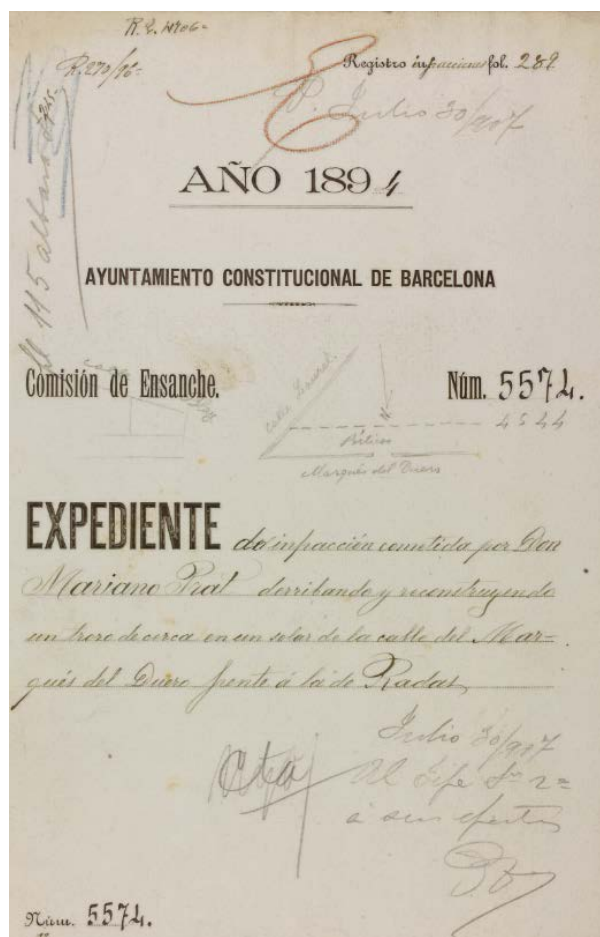 R.E. 4706=
R.270/96=
Registro infracciones fol. 289.
P. Julio 30/907
AÑO 1894
AYUNTAMIENTO CONSTITUCIONAL DE BARCELONA
Comisión de Ensanche.
Núm. 5574.
4544
Marqués del Duero
EXPEDIENTE de infracción cometida por Don
Mariano Prat derribando y reconstruyendo
un trozo de cerca en un solar de la calle del Mar=
qués del Duero frente á la de Radas
Julio 30/907
Al Jefe Sn 2=
á sus efectos
Cta
Núm. 5574.